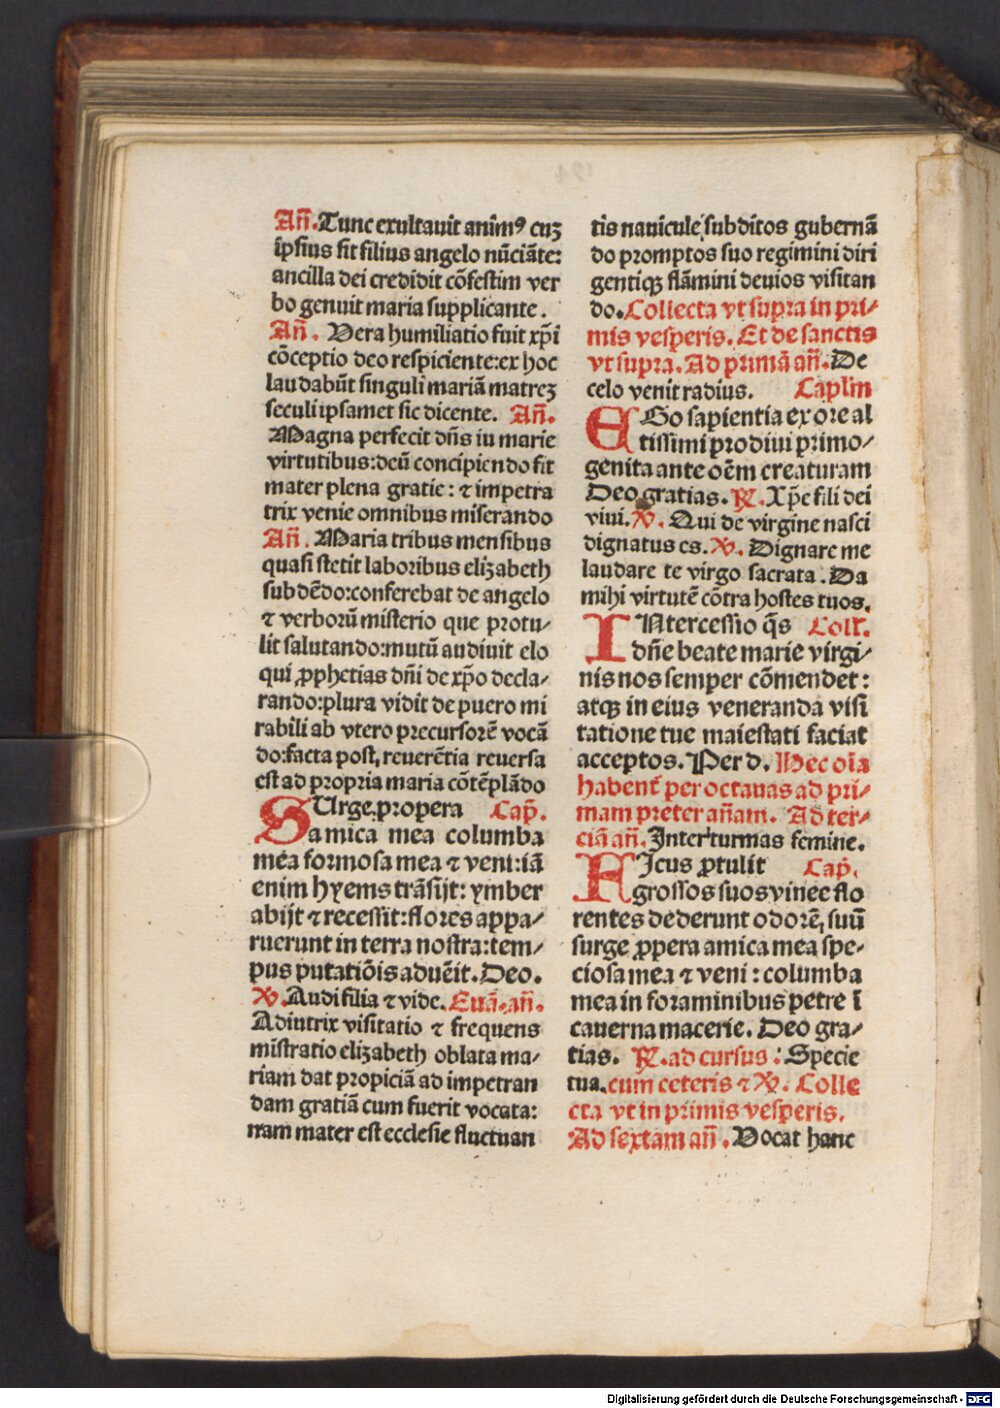 Añ. Tunc exultauit animꝰ cuʒ
ipsius fit filius angelo nūciāte:
ancilla dei credidit cōfestim ver
bo genuit maria supplicante.
Añ. Vera humiliatio fuit xp̄i
cōceptio deo respiciente: ex hoc
laudabūt singuli mariā matreʒ
seculi ipsamet sic dicente. Añ.
Magna perfecit dñs iu marie
virtutibus: deū concipiendo fit
mater plena gratie: ⁊ impetra
trix venie omnibus miserando
Añ. Maria tribus mensibus
quasi stetit laboribus elizabeth
subdēdo: conferebat de angelo
⁊ verborū misterio que protu⸗
lit salutando: mutū audiuit elo
qui ꝓphetias dñi de xp̄o decla⸗
rando: plura vidit de puero mi
rabili ab vtero precursorē vocā
do: facta post, reuerētia reuersa
est ad propria maria cōtēplādo
SUrge propera Cap̄.
amica mea columba
mea formosa mea ⁊ veni: iā
enim hyems trāsijt: ymber
abijt ⁊ recessit: flores appa⸗
ruerunt in terra nostra: tem⸗
pus putatiōis aduēit. Deo.
℣. Audi filia ⁊ vide. Euā. añ.
Adiutrix visitatio ⁊ frequens
mistratio elizabeth oblata ma⸗
riam dat propiciā ad impetran
dam gratiā cum fuerit vocata:
nam mater est ecclesie fluctuan
tis nauicule subditos gubernā
do promptos suo regimini diri
gentiqꝫ flāmini deuios visitan
do. Collecta vt supra in pri⸗
mis vesperis. Et de sanctis
vt supra. Ad primā añ. De
celo venit radius. Caplm
EGo sapientia ex ore al
tissimi prodiui primo⸗
genita ante oēm creaturam
Deo gratias. ℟. Xp̄e fili dei
viui. ℣. Qui de virgine nasci
dignatus es. ℣. Dignare me
laudare te virgo sacrata. Da
mihi virtutē cōtra hostes tuos.
INtercessio q̄s Coll̄.
dñe beate marie virgi⸗
nis nos semper cōmendet:
atqꝫ in eius veneranda visi
tatione tue maiestati faciat
acceptos. Per d. Hec oīa
habent̄ per octauas ad pri⸗
mam preter añam. Ad ter⸗
ciā añ. Inter turmas femine.
FIcus ꝓtulit Cap̄.
grossos suos vinee flo
rentes dederunt odorē, suū
surge ꝓpera amica mea spe⸗
ciosa mea ⁊ veni: columba
mea in foraminibus petre ī
cauerna macerie. Deo gra⸗
tias. ℟. ad cursus: Specie
tua. cum ceteris ⁊ ℣. Colle
cta vt in primis vesperis.
Ad sextam añ. Vocat hanc
Digitalisierung gefördert durch die Deutsche Forschungsgemeinschaft - DFG